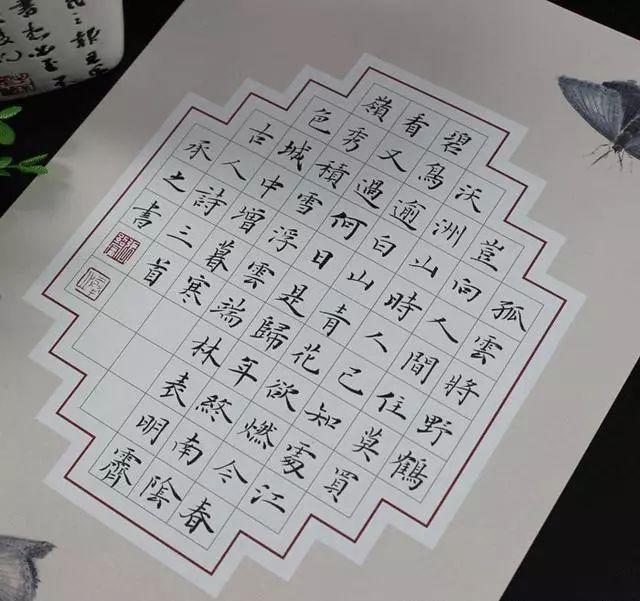 孤雲將野鶴
豈向人間住莫買
沃洲山時人已知處江
碧鳥逾白山青花欲燃今春
看又過何日是歸年終南陰
嶺秀積雪浮雲端林表明霽
色城中增暮寒
古人詩三首
承之書